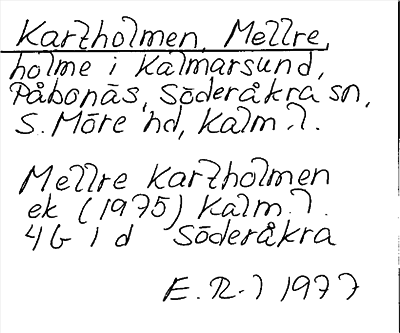 Karlholmen, Mellre,
holme i Kalmarsund,
Påbonäs, Söderåkra sn,
S. Möre hd, Kalm. l.
Mellre Karlholmen
ek (1975) Kalm. l.
4G 1 d Söderåkra
E. R-l 1977